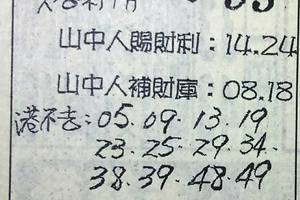 山中人賜財利：14.24
山中人補財庫：08.18
港不去：05.09.13.19
23.25.29.34.
38.39.48.49